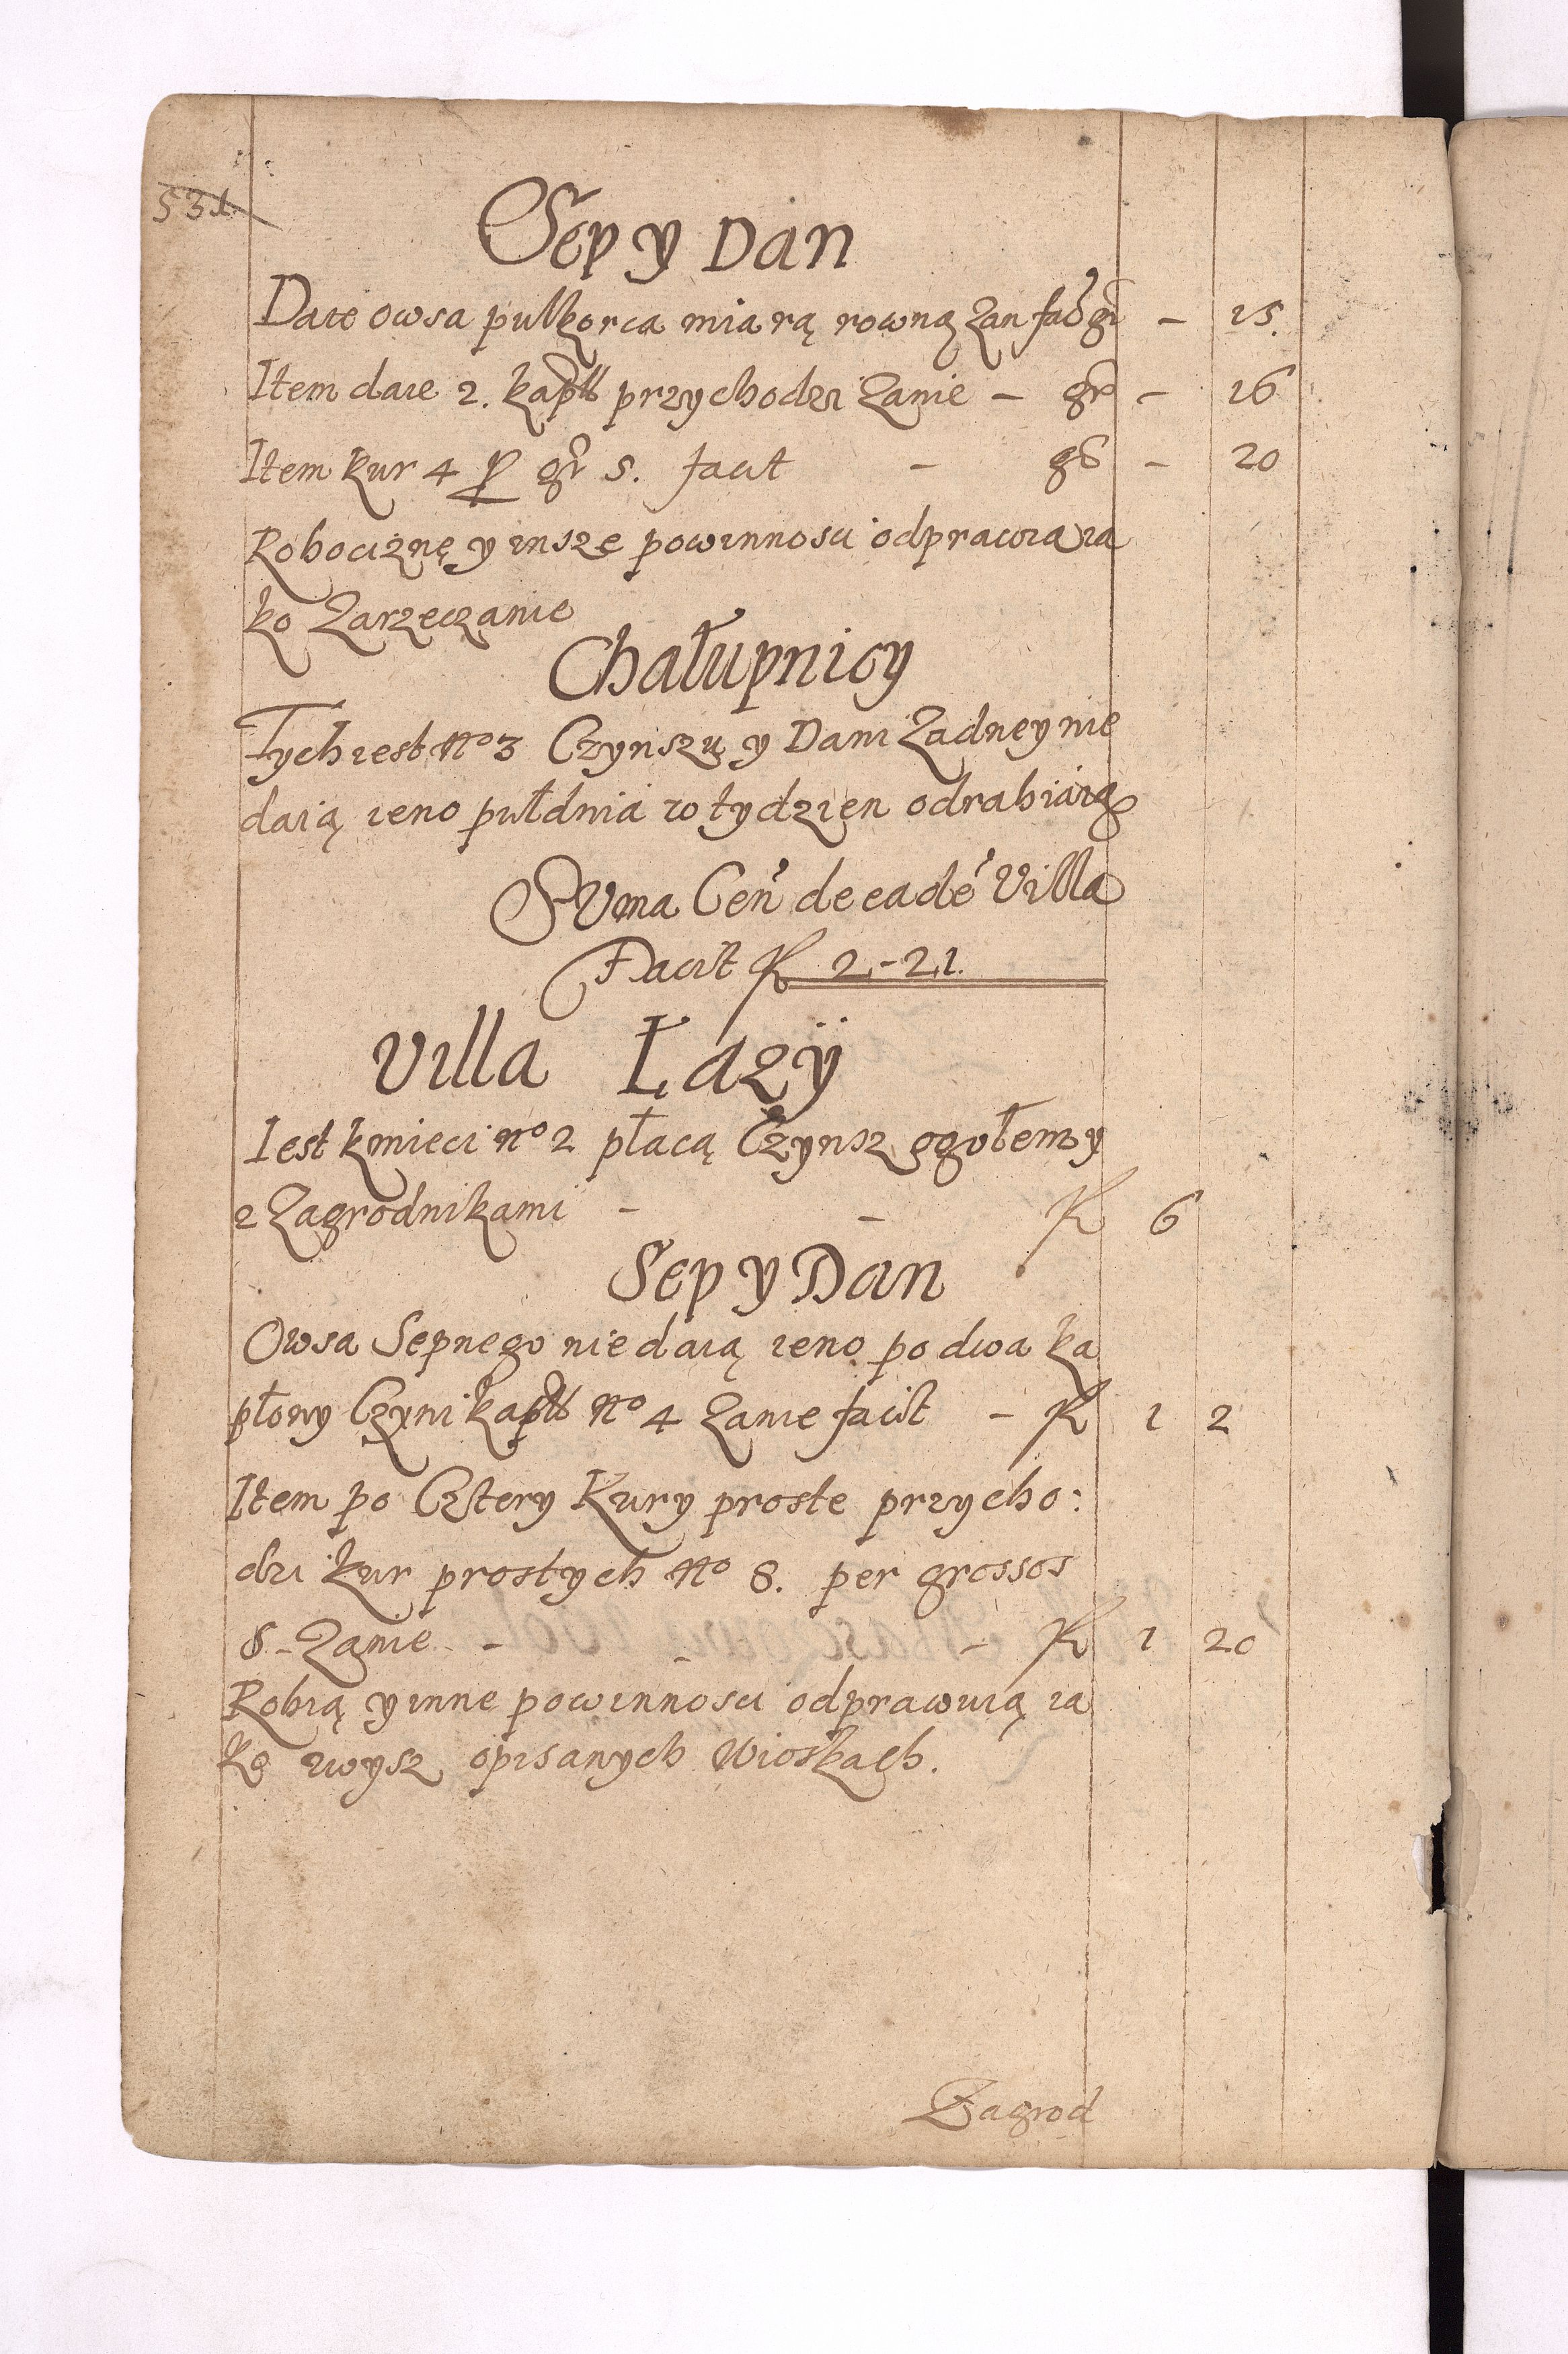 531
Sep y Dan
Daie owsa pułkorca miarą rowną Zan fac gr – 15.
Item daie 2. kapłł przychodzi Zanie – gr – 16
Item kur 4 P gr 5. facit – gr – 20
Robociznę y insze powinnosci odprawia ia
ko Zarzeczanie
Chałupnicy
Tych iest No 3 Czynszu y Dani Zadney nie
daią ieno pułdnia w tydzien odrabiaią
Suma Cen de eadē Villa
Facit R 2.-21.
Villa Łazÿ
Iest kmieci no 2 płacą Czynsz ogołem y
z Zagrodnikami – – R 6
Sep y Dan
Owsa Sepnego nie daią ieno po dwa ka
płony Czyni kapłł No 4 Zanie facit – R 1 2
Item po Cztery Kury proste przycho:
dzi kur prostych No 8. per grossos
8 – Zanie – – – R 1 20
Robią y inne powinnosci odprawuią ia
ko zwysz opisanych Wioskach.
Zagrod